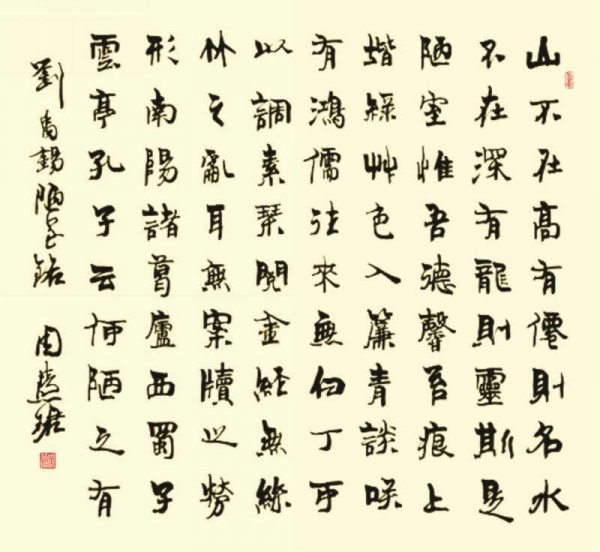 山不在高有僊則名水
不在深有龍則靈斯是
陋室惟吾德馨苔痕上
堦綠艸色入簾青談咲
有鴻儒往來無白丁可
以調素琴閱金經無絲
竹之亂耳無案牘之勞
形南陽諸葛廬西蜀子
雲亭孔子云何陋之有
劉禹錫陋室銘 周慧珺